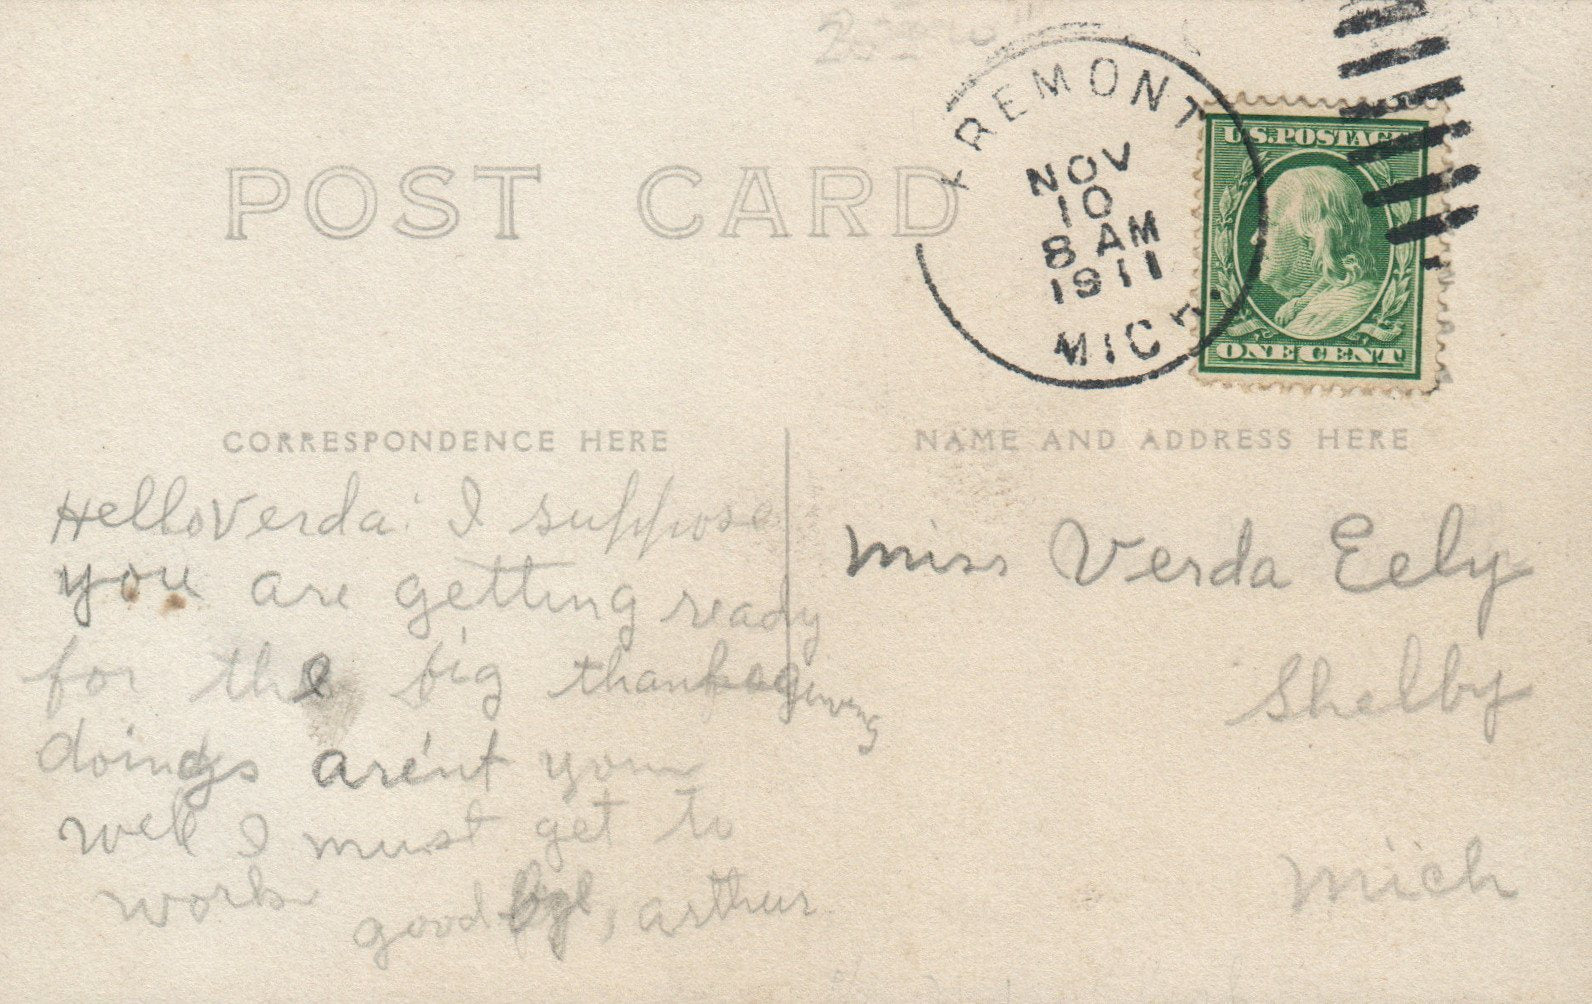 FREMONT
NOV
10
8 AM
1911
MICH.
U.S. POSTAGE
ONE CENT
POST CARD
CORRESPONDENCE HERE
Hello Verda: I suppose
you are getting ready
for the big thanksgiving
doings are'nt you
well I must get to
work
good bye, arthur.
NAME AND ADDRESS HERE
Miss Verda Eely
Shelby
Mich